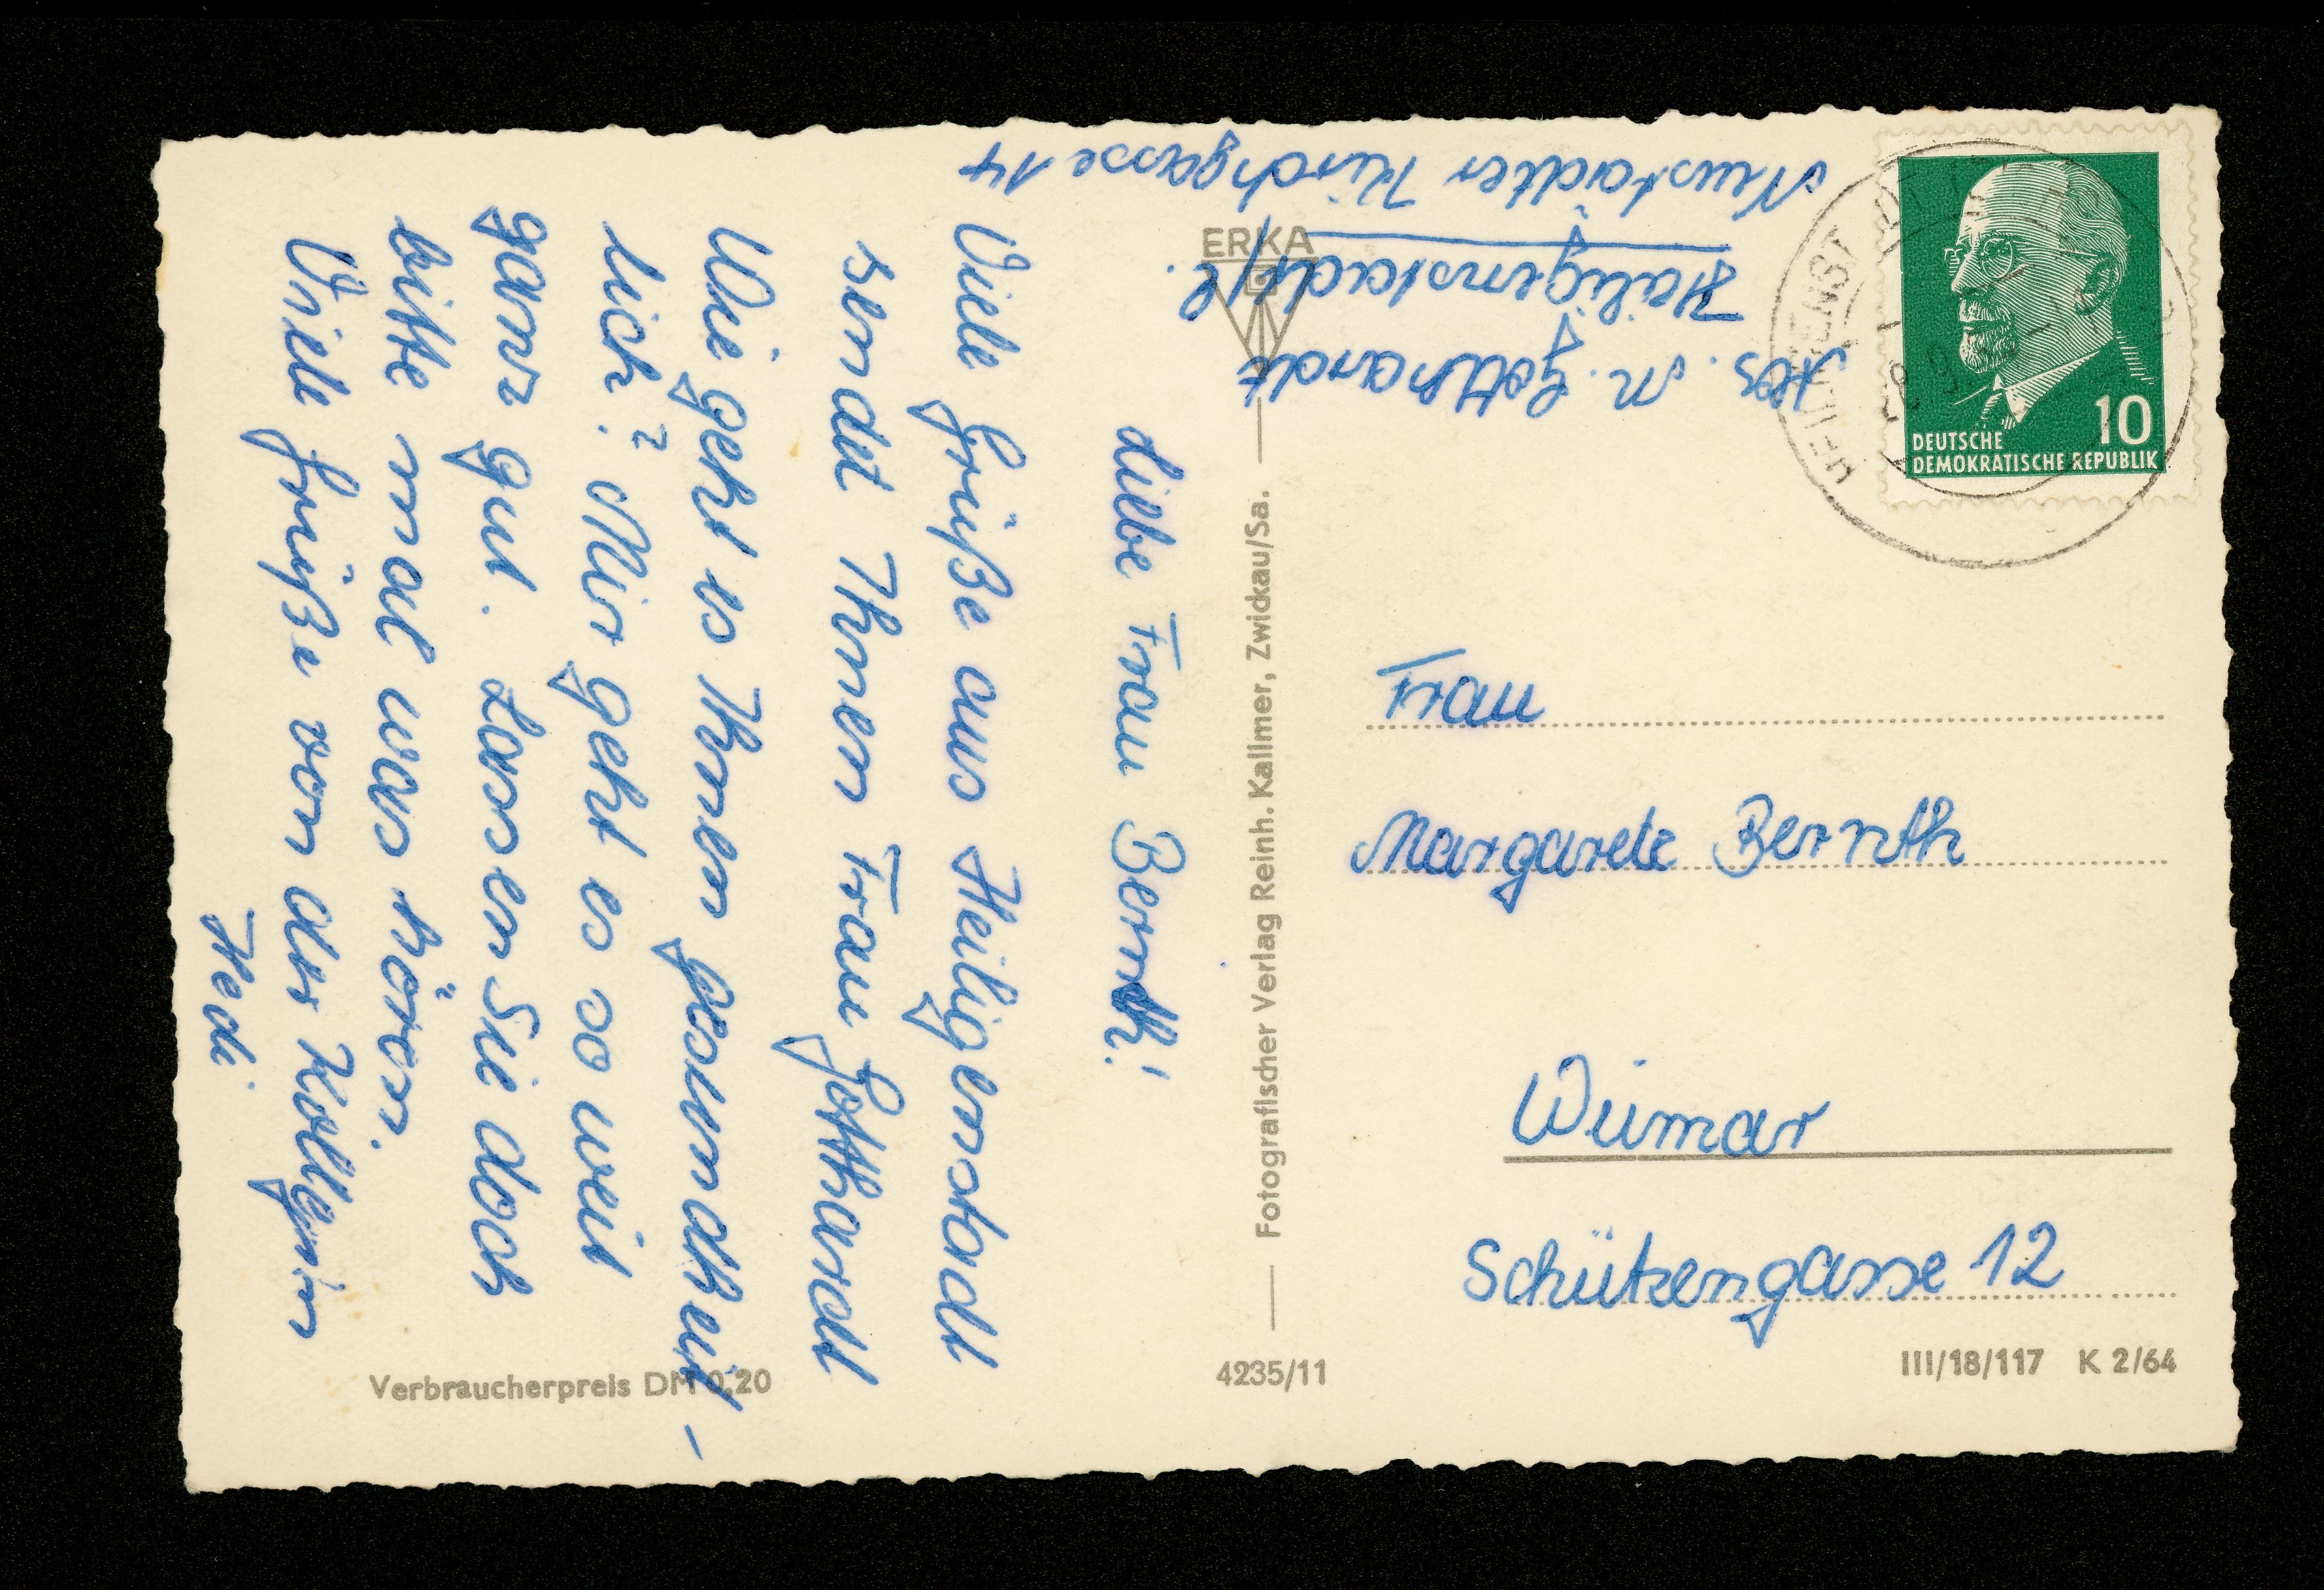 Abs. M. Gotthardt
Heiligenstadt/E.
Neustädter Kirchgasse 14
Liebe Frau Bernth!
Viele Grüße aus Heiligenstadt
sendet Ihnen Frau Gotthardt
Wie geht es Ihnen gesundheit-
lich? Mir geht es so weit
ganz gut. Lassen Sie doch
bitte mal was hören.
Viele Grüße von der Kollegin
Hedi.
ERKA
Fotografischer Verlag Reinh. Kallmer, Zwickau/Sa.
10
DEUTSCHE
DEMOKRATISCHE REPUBLIK
Frau
Margarete Bernth
Weimar
Schützengasse 12
Verbraucherpreis DM 0.20
4235/11
III/18/117 K 2/64